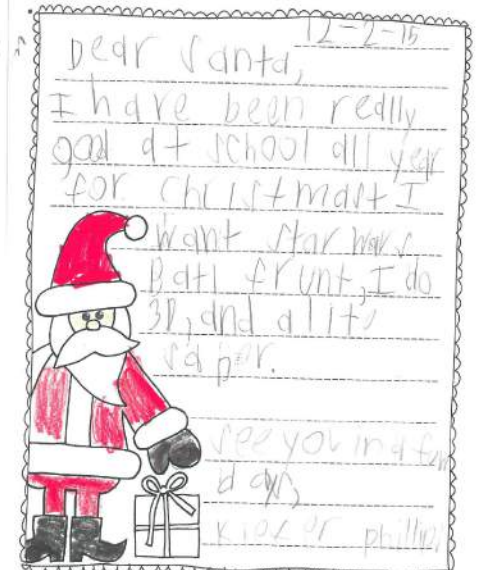 12-2-15
Dear Santa,
I have been really
good at school all year
for christmast I
want star wars
Batl frunt, I do
3D, and a lits
saper.
see you in a few
days,
phillips